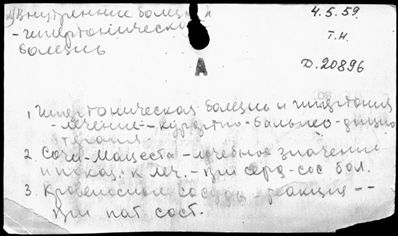 Внутренние болезни
- гипертоническая
болезнь
4.5.59.
Т.Н.
А
Д.20896
1. Гипертоническая болезнь и гипотония
- лечение - курортно-бальнео-
терапия
2. Сочи-Мацеста - лечебное значение
и показ. к леч. - при серд-сос бол.
3. Кровеносные сосуды - реакция --
при пат. сост.